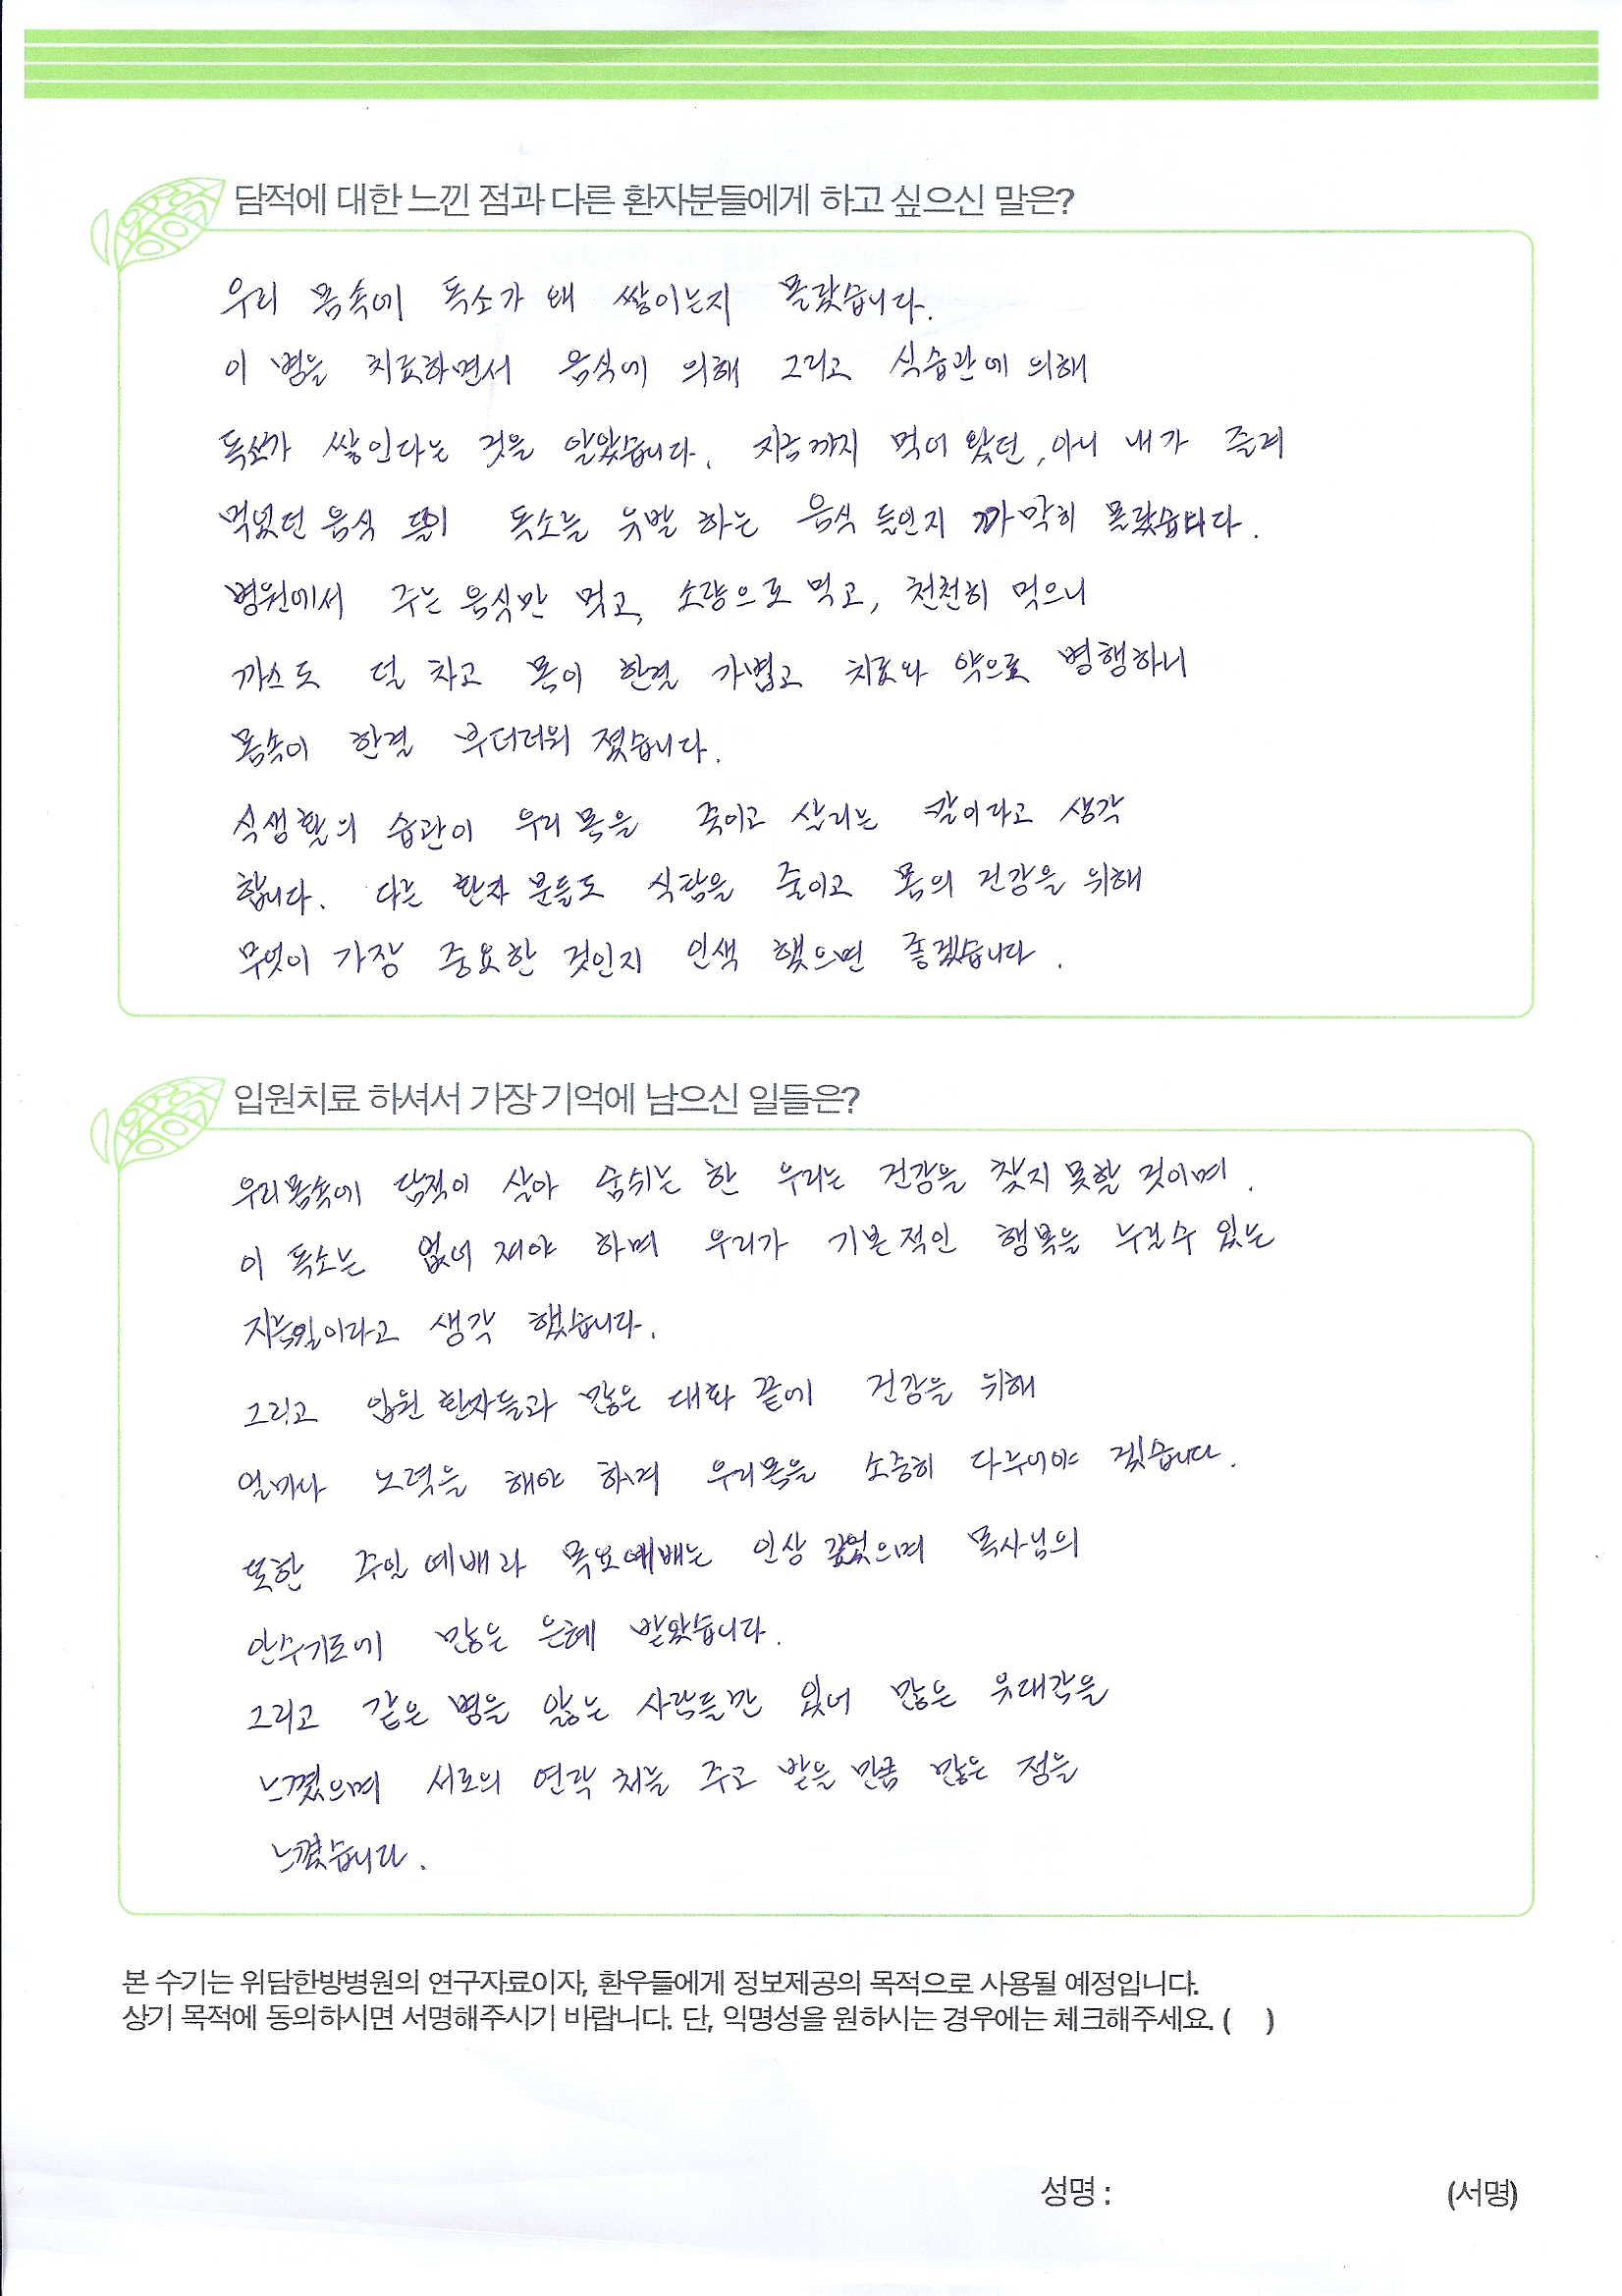 담적에 대한 느낀 점과 다른 환자분들에게 하고 싶으신 말은?
우리 몸속에 독소가 왜 쌓이는지 몰랐습니다.
이 병을 치료하면서 음식에 의해 그리고 식습관에 의해
독소가 쌓인다는 것을 알았습니다. 지금까지 먹어 왔던, 아니 내가 즐겨
먹었던 음식 들이 독소를 유발 하는 음식 들인지 까막히 몰랐습니다.
병원에서 주는 음식만 먹고, 소량으로 먹고, 천천히 먹으니
까스도 덜 차고 몸이 한결 가볍고 치료와 약으로 병행하니
몸속이 한결 부더러워 졌습니다.
식생활의 습관이 우리 몸을 죽이고 살리는 칼이라고 생각
합니다. 다른 환자 분들도 식탐을 줄이고 몸의 건강을 위해
무엇이 가장 중요한 것인지 인색 했으면 좋겠습니다.
입원치료 하셔서 가장 기억에 남으신 일들은?
우리몸속에 담적이 살아 숨쉬는 한 우리는 건강을 찾지 못할 것이며.
이 독소는 없어 져야 하며 우리가 기본적인 행복을 누릴수 있는
이라고 생각 했습니다.
그리고 입원 환자들과 많은 대화 끝에 건강을 위해
얼마나 노력을 해야 하며 우리몸을 소중히 다루어야 겠습니다.
또한 주일 예배과 목요예배는 인상 깊었으며 목사님의
안수기도에 많은 은혜 받았습니다.
그리고 같은 병을 앓는 사람들만 있어 많은 유대감을
느꼈으며 서로의 연락 처를 주고 받을 만큼 많은 정을
느꼈습니다.
본 수기는 위담한방병원의 연구자료이자, 환우들에게 정보제공의 목적으로 사용될 예정입니다.
상기 목적에 동의하시면 서명해주시기 바랍니다. 단, 익명성을 원하시는 경우에는 체크해주세요. ( )
성명 : (서명)